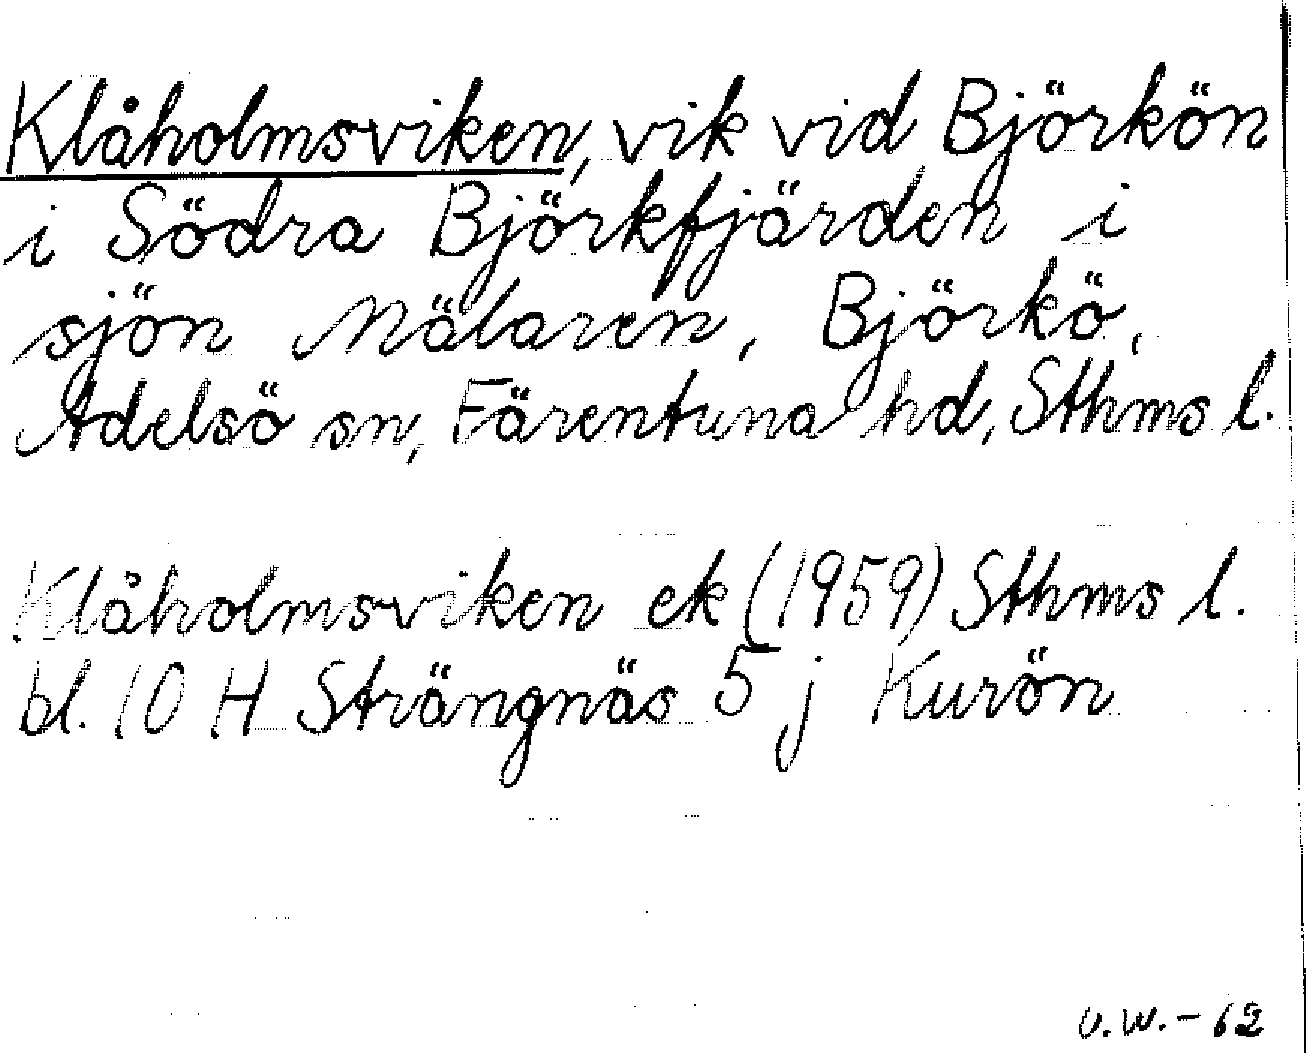 Klåholmsviken, vik vid Björkön
i Södra Björkfjärden i
sjön Mälaren, Björkö,
Adelsö sn, Färentuna hd, Sthms l.
Klåholmsviken ek (1959) Sthms l.
bl. 10 H Strängnäs 5 j Kurön
U.W. - 62